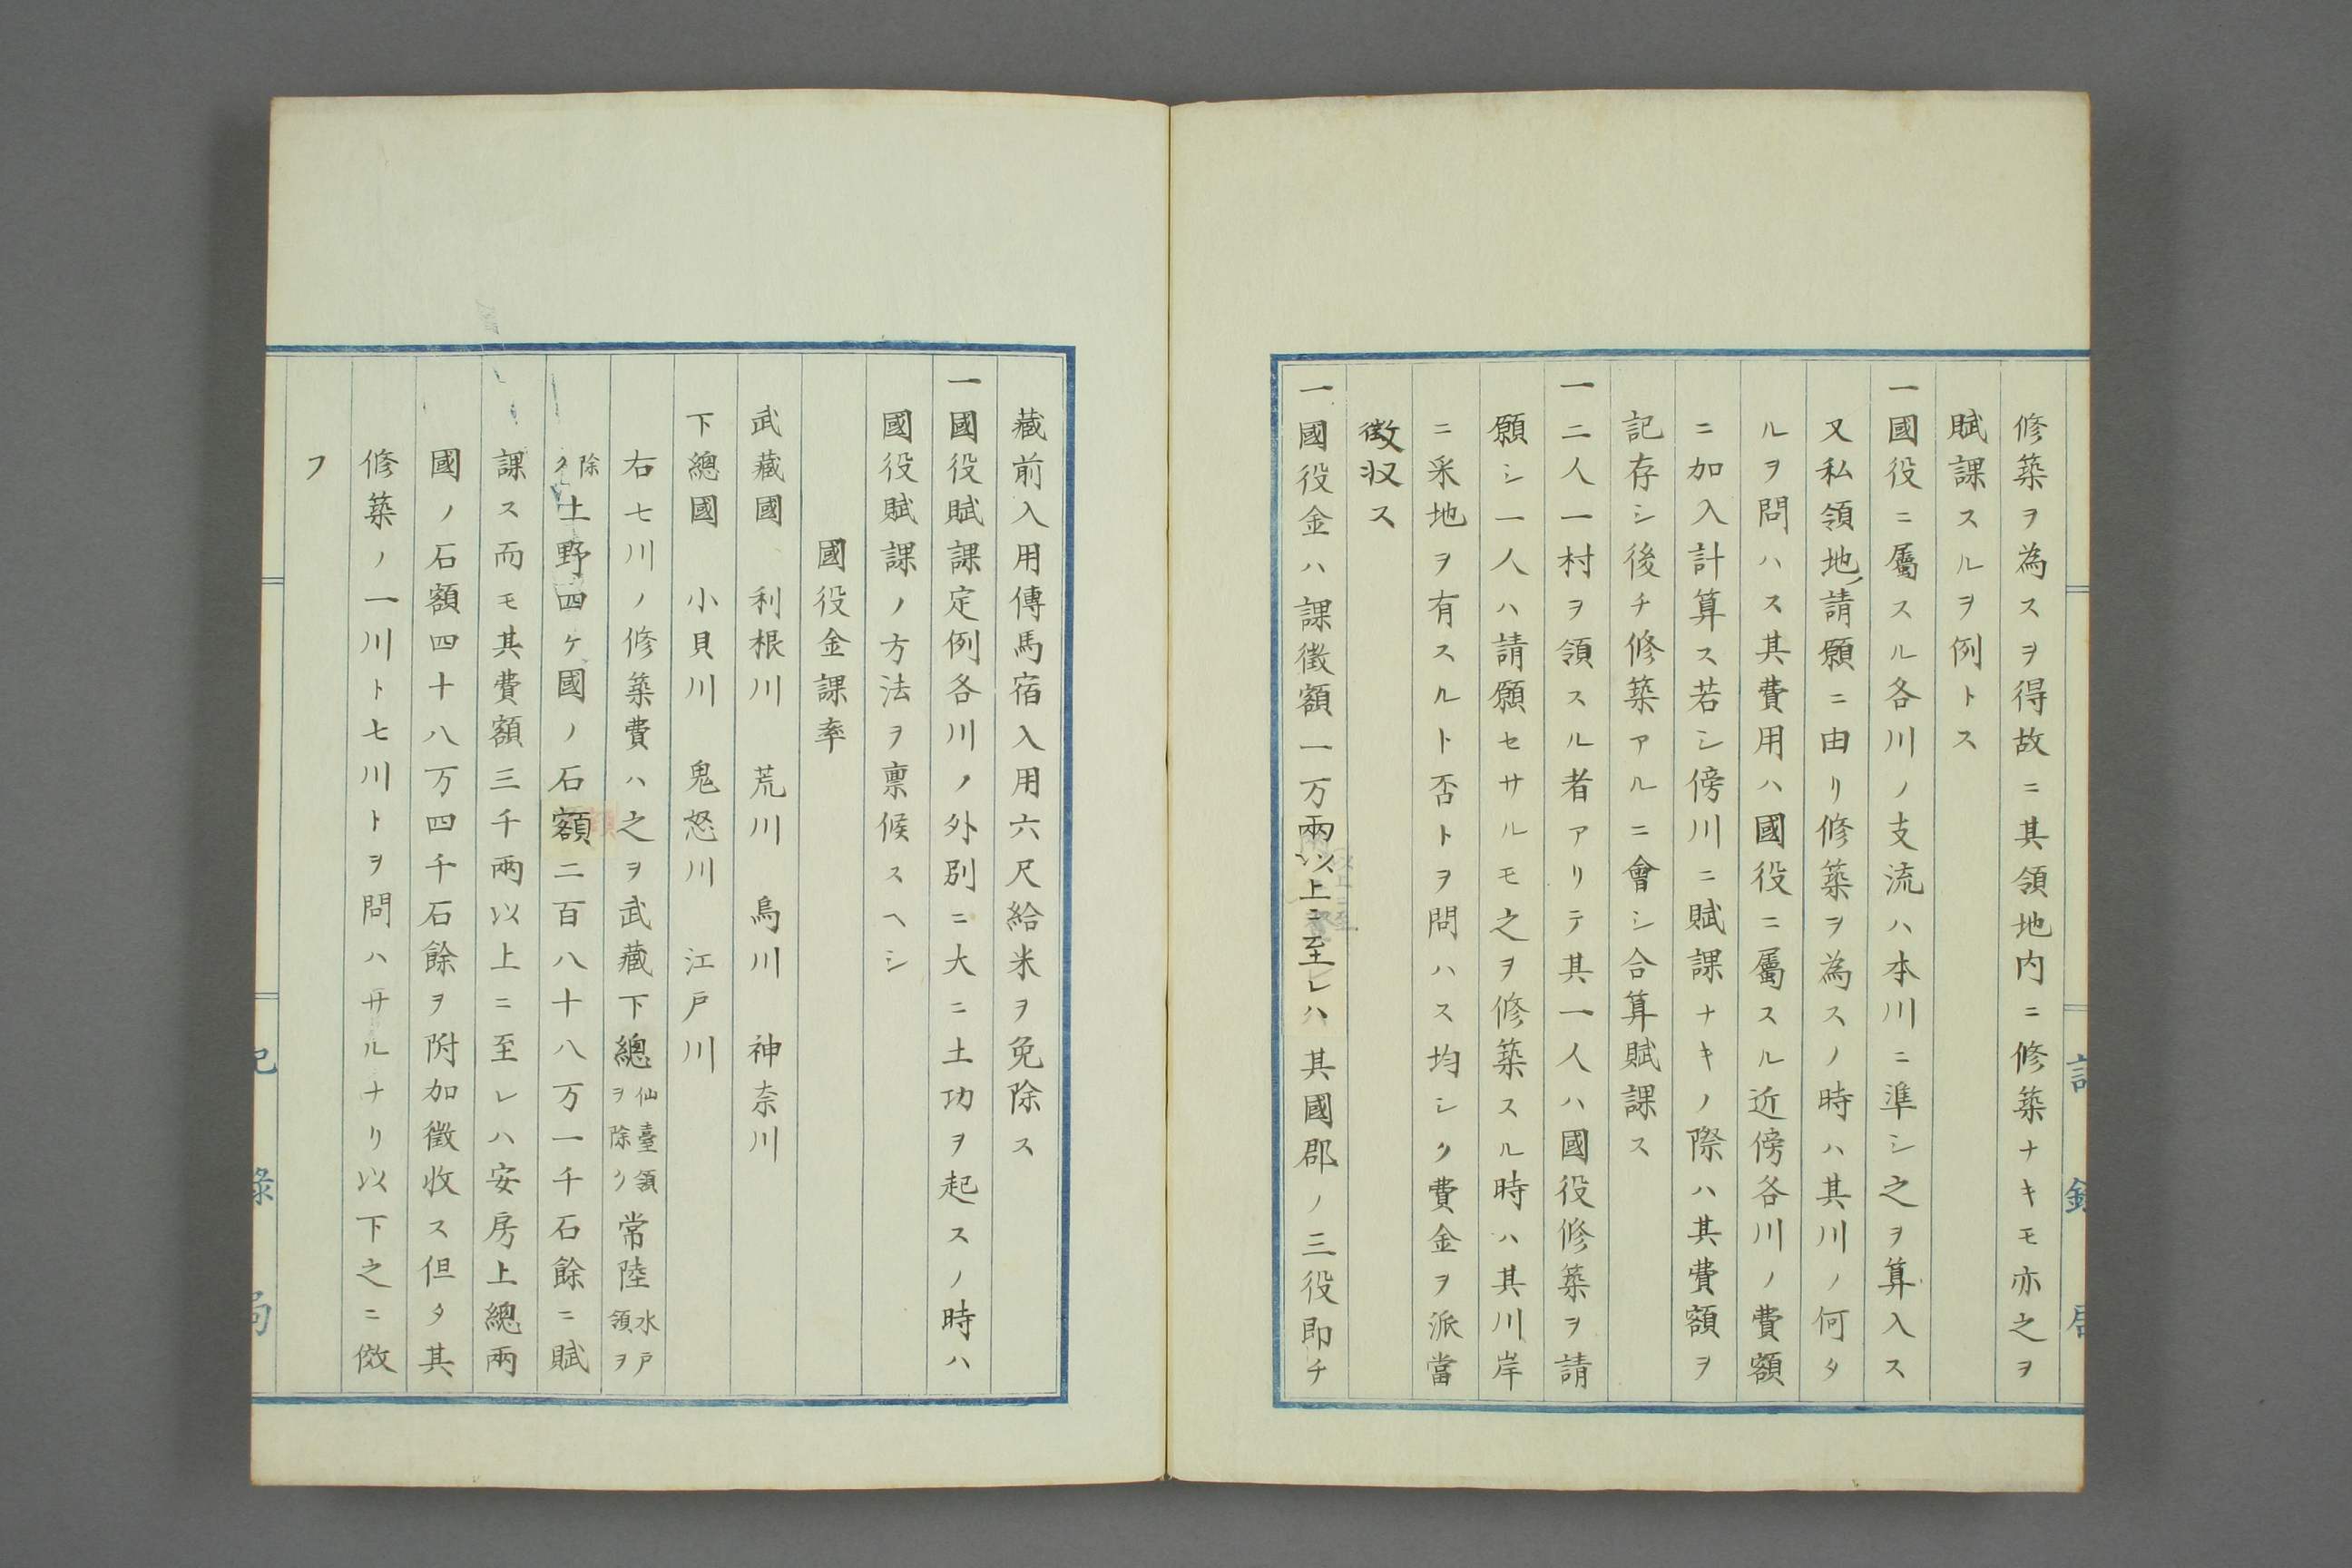 修築ヲ為スヲ得故ニ其領地内ニ修築ナキモ亦之ヲ
賦課スルヲ例トス
一國役ニ屬スル各川ノ支流ハ本川ニ準シ之ヲ算入ス
又私領地ノ請願ニ由リ修築ヲ為スノ時ハ其川ノ何タ
ルヲ問ハス其費用ハ國役ニ屬スル近傍各川ノ費額
ニ加入計算ス若シ傍川ニ賦課ナキノ際ハ其費額ヲ
記存シ後チ修築アルニ會シ合算賦課ス
一二人一村ヲ領スル者アリテ其一人ハ國役修築ヲ請
願シ一人ハ請願セサルモ之ヲ修築スル時ハ其川岸
ニ采地ヲ有スルト否トヲ問ハス均シク費金ヲ派當
徴収ス
一國役金ハ課徴額一万兩以上ニ至レハ其國郡ノ三役即チ
藏前入用傳馬宿入用六尺給米ヲ免除ス
一國役賦課定例各川ノ外別ニ大ニ土功ヲ起スノ時ハ
國役賦課ノ方法ヲ禀候スヘシ
國役金課率
武藏國 利根川 荒川 烏川 神奈川
下總國 小貝川 鬼怒川 江戸川
右七川ノ修築費ハ之ヲ武藏下總仙臺領ヲ除ク常陸水戸領ヲ
除ク上野四ケ國ノ石額二百八十八万一千石餘ニ賦
課ス而モ其費額三千兩以上ニ至レハ安房上總兩
國ノ石額四十八万四千石餘ヲ附加徴收ス但タ其
修築ノ一川ト七川トヲ問ハサルナリ以下之ニ倣
フ
記録局